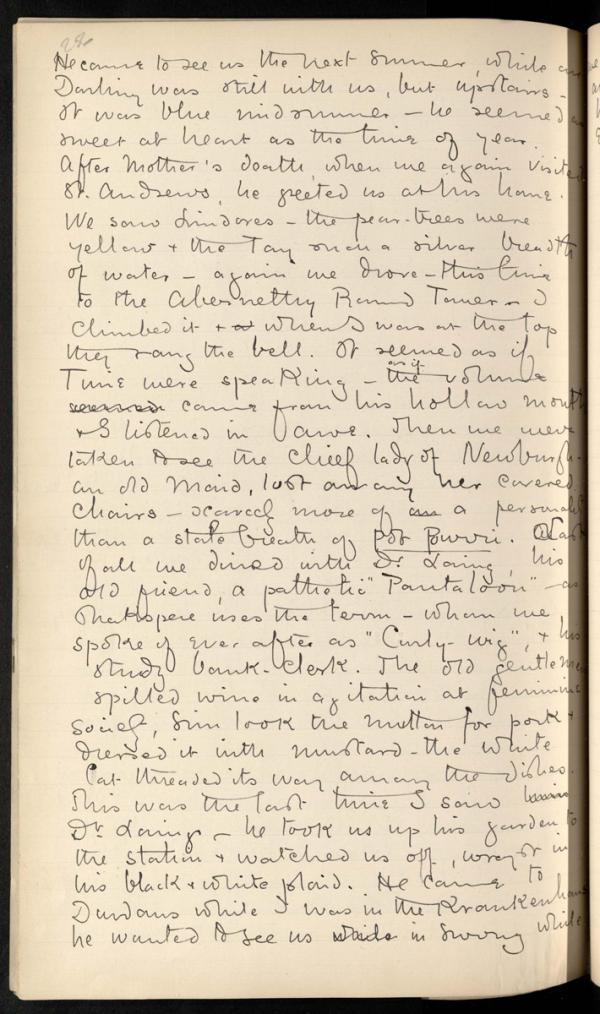 He came to see us the next summer, while our
Darling was still with us, but upstairs –
It was blue midsummer – he seemed as
sweet at heart as the time of year.
After Mother's death, when we again visited
St. Andrews, he greeted us at his home.
We saw Lindores – the pear-trees were
yellow & the Tay such a silver breadth
of water – again we drove – this time
to the Abernethy Round Tower – I
climbed it & when I was at the top
they rang the bell. It seemed as if
Time were speaking – as if the volume
seemed came from his hollow mouth
& I listened in awe. Then we were
taken to see the chief lady of Newburgh –
an old maid, lost among her covered
chairs – scarcely more of a personality
than a stale breath of pot pourri. Last
of all we dined with Dr Laing, his
old friend, a pathetic "Pantaloon" – as
Shakspere uses the term – whom we
spoke of ever after as "Curly-wig", & his
study bank-clerk. The old gentleman
spilled wine in agitation at feminine
society, Sim took the mutton for pork &
dressed it with mustard – the white
Cat threaded its way among the dishes.
This was the last time I saw
Dr Laing – he took us up his garden to
the station & watched us off, wrapt in
his black & white plaid. He came to
Durdans while I was in the Krankenhaus
he wanted to see us while in Surrey while